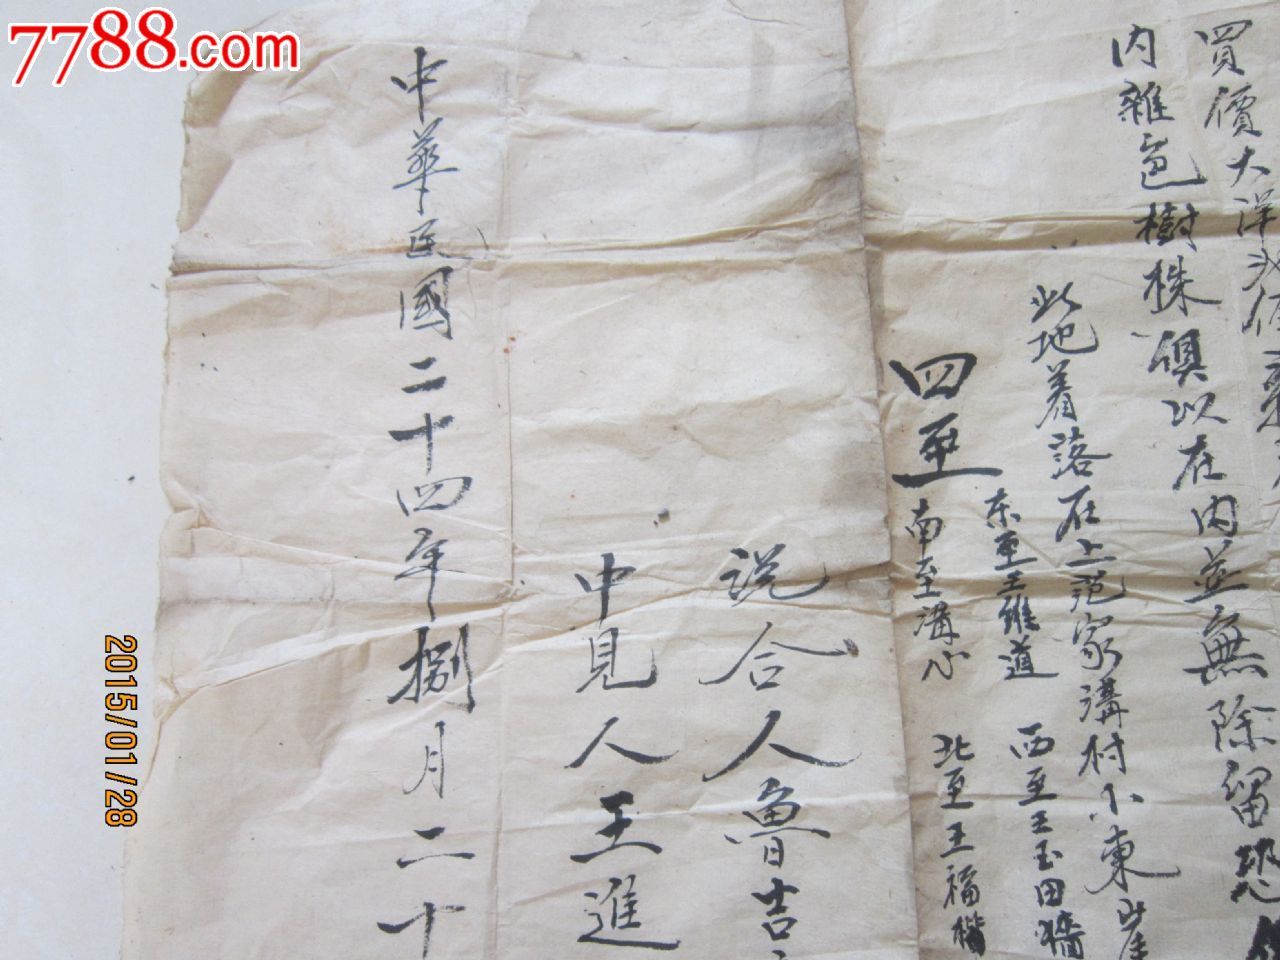 7788.com
買價大洋
内雜色樹株俱以在内並無除留恐
此地着落在上范家溝村小東崖
四至
东至王維道 西至王玉田墻
南至溝心 北至王福楷
说合人魯吉
中見人王進
中華民國二十四年捌月二十
2015/01/28